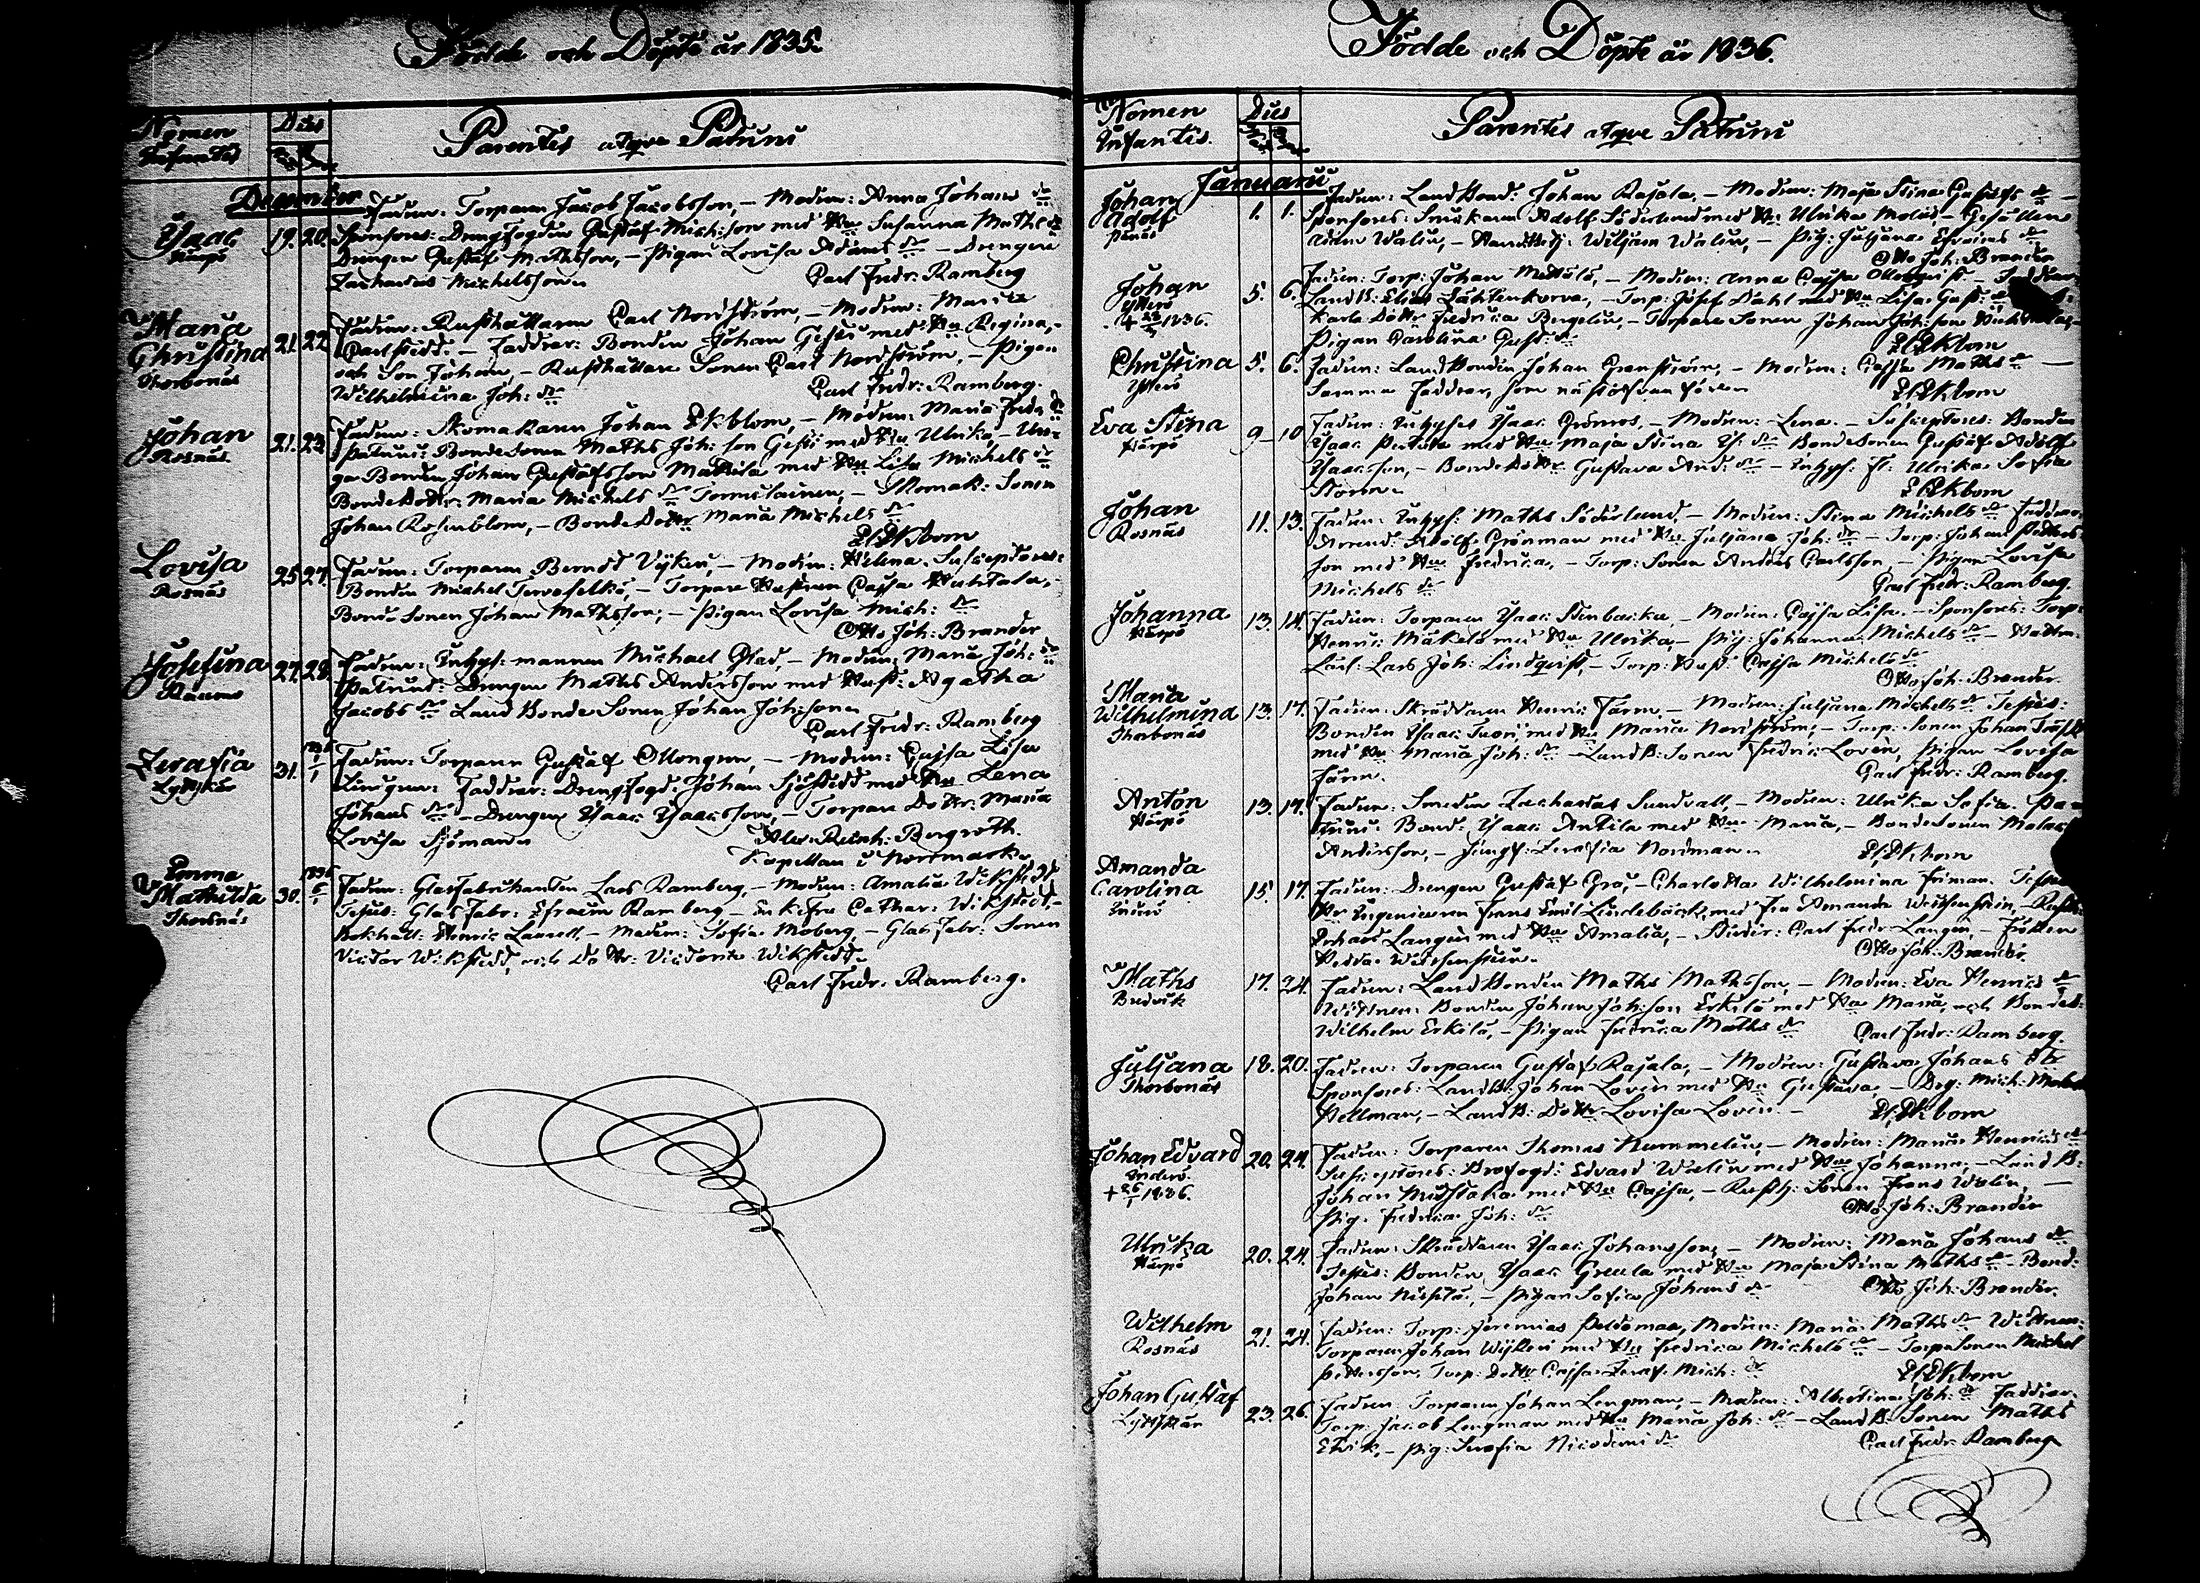 Födde och Döpte år 1835.
Nomen Infantis
Dies
Parentes atqve Patrini
December
Isaac
19. 20.
Fadren: Torparen Jacob Jacobsson, – Modren: Anna Johans dr
Sponsores: Drengfogden Gustaf Mich:son med Hu Susanna Maths dr
Drengen Gustaf Mathsson, – Pigan Lovisa Adams dr – Drengen
Zacharias Michelsson.
Carl Fredr: Ramberg
Maria
Christina
Thorbonäs
21. 22.
Fadren: Rusthållaren Carl Nordström, – Modren: Maria
Carlstedt. – Faddrar: Bonden Johan med Hu Regina,
och Son Johan, – Rusthållare Sonen Carl Nordström, – Pigan
Wilhelmina Joh: dr
Carl Fredr: Ramberg.
Johan
Rosnäs
21. 23.
Fadren: Skomakaren Johan Ekblom, – Modren: Maria Fredr: dr
Patrini: Bondesonen Maths Joh:son med Hu Ulrika, – Un-
ga Bonden Johan Gustafsson Mattila med Hu Lisa Michels dr
Bonde Dottr: Maria Michels dr – Skomak: Sonen
Johan Rosenblom, – Bonde Dottr Maria Michels dr
Lovisa
Rosnäs
25. 27.
Fadren: Torparen Berndt Vyken, – Modren: Helena. Susceptores:
Bonden Michel – Torpare Hustrun Cajsa
Bonde Sonen Johan Mathsson, – Pigan Lovisa Mich: dr
Otto Joh: Brander
Josefina
Räumo
27. 28.
Fadren: Inhys: mannen Michael Glad, – Modren: Maria Joh: dr
Patrini: Drengen Maths Andersson med Hust: Agatha
Jacobs dr Land Bonde Sonen Johan Joh:sson
Carl Fredr: Ramberg
Serafia
31. 1836 1/1
Fadren: Torparen Gustaf Ollongren, – Modren: Cajsa Lisa
Lindgren. Faddrar: Drengfogd: Johan Sjöstedt med Hu Lena
Johans dr – Drengen Isaac Isacsson, – Torpare Dottr: Maria
Lovisa Sjöman
Alex: Reinh: Bergroth.
Kapellan i Norrmark
Emma
Mathilda
Thorsnäs
30. 1836 6/1
Fadren: Glasfabrikanten Lars Ramberg, – Modren: Amalia Wikstedt
Testes: Glas Fabr: Efraim Ramberg – Enkefru Cathar: Wikstedt, –
Bokhåll: Henric Laurell, – Madem: Sofia Moberg, – Glas Fabr: Sonen
Victor Wikstedt, och Dottr: Victoria Wikstedt.
Carl Fredr: Ramberg.
Födde och Döpte år 1836.
Nomen
Infantis.
Dies
Parentes atqve Patrini
Januarii
Johan
Adolf
1. 1.
Fadren: Land Bond: Johan Rajala, – Modren: Maja Stina Gustafs dr –
Sponsores: Snickaren Adolf Söderlund med Hu Ulrika – Gesällen
Walin, – Handtv:lj: Wiljam Walin, – Pig: Juljana Efraims dr
Otto Joh: Brander
Johan
Ytterö
+ 1836.
5. 6.
Fadren: Torp: Johan Mattila, – Modren: Anna Cajsa Ollonqvist –
Land B: Elias Lähtenkorva, – Torp: Josef Dahl med Hu Lisa Gust: dr
Karla Dottr Fredrica Bergelin, – Torpare Sonen Johan Joh:son
Pigan Carolina Gust: dr
Christina
Ytterö
5. 6.
Fadren: Land Bonden Johan Granström, – Modren: Cajsa Maths dr –
Samma Faddrar, som näst
Eva Stina
9. 10
Fadren: Inhyses Isaac Grönroos, – Modren: Lena. – Susceptores: Bonden
Isaac med Hu Maja Stina Is: dr Bonde Sonen Gustaf Adolf
Isaacsson, – Bonde Dottr Gustava And: dr – Inhys: Fl: Ulrika Sofia
Storm.
Johan
Rosnäs
11. 13.
Fadren: Inhys: Maths Söderlund, – Modren: Stina Michels dr Faddrar,
Arrend: Adolf Grönman med Hu Juljana Joh: dr – Torp: Johan Petters
son med Hu Fredrica, – Torp: Sonen Anders Carlsson, – Pigan Lovisa
Michels dr
Carl Fredr: Ramberg.
Johanna
13. 14.
Fadren: Torparen Isaac Stenbacka, – Modren: Cajsa Lisa. – Sponsores: Torp:
Henric Mäkelä med Hu Ulrika, – Pig: Johanna Michels dr –
Lars Joh: Lindqvist, – Torp: Hust: Cajsa Michels dr
Otto Joh: Brander.
Maria
Wilhelmina
Thorbonäs
13. 17.
Fadren: Skräddaren Henric Färm, – Modren: Juljana Michels dr Testes:
Bonden Isaac Tuori, med Hu Maria Nordström, – Torp: Sonen Johan
med Hu Maria Joh: dr – Land B: Sonen Fredric Lovén, Pigan Lovisa
Färm.
Carl Fredr: Ramberg.
Anton
13. 17.
Fadren: Smeden Zacharias Sundvall, – Modren: Ulrika Sofia. Pa-
trini: Bond: Isaac Antila med Hu Maria, – Bonde Sonen
Andersson, – Jungf: Serafia Nordman.
Amanda
Carolina
15. 17.
Fadren: Drengen Gustaf Grå, – Charlotta Wilhelmina Friman. Testes
Hr Ingenieuren Frans Emil Lindebäck, med Fru Amanda Weissenstein, –
Erhard Langen med Hu Amalia, – Studer: Carl Fredr: Langen, – Fröken
Hedda Weissenstein.
Otto Joh: Brander.
Maths
Bredvik
17. 24.
Fadren: Land Bonden Maths Mathsson, – Modren: Eva Henrics dr
Wittnen: Bonden Johan Joh:son Erkilä med Hu Maria, och Bondes:
Wilhelm Erkilä, – Pigan Fredrica Maths dr
Carl Fredr: Ramberg.
Juljana
Thorbonäs
18. 20.
Fadren: Torparen Gustaf Rajala, – Modren: Gustava Johans dr
Sponsores: Land B: Johan Lovén med Hu Gustava, – Drg: Mich:
Hellman, – Land B: Dottr Lovisa Lovén. –
Johan Edvard
Inderö
+ 26/1 1836.
20. 24.
Fadren: Torparen Thomas Nummelin, – Modren: Maria Henrics dr
Susceptores: Brofogd: Edvard Walin med Hu Johanna, – Land B:
Johan med Hu Cajsa, – Rusth: Sonen Frans Walin, –
Pig. Fredrica Joh: dr
Otto Joh: Brander
Ulrika
20. 24.
Fadren: Skräddaren Isaac Johansson, – Modren: Maria Johans dr
Testes: Bonden Isaac Greula med Hu Maja Stina Maths dr – Bond:
Johan – Pigan Sofia Johans dr
Otto Joh: Brander.
Wilhelm
Rosnäs
21. 24.
Fadren: Torp: Jeremias Peldomaa, Modren: Maria Maths dr Wittnen:
Torparen Johan Wyken med Hu Fredrica Michels dr – Torpe Sonen Michel
Pettersson, Torp: Dottr Cajsa Seraf: Mich: dr
Johan Gustaf
23. 26.
Fadren Torparen Johan Lengman, – Modren: Albertina Joh: dr Faddrar:
Torp: Jacob Lengman med Hu Maria Joh: dr – Land B: Sonen Maths
– Pig: Serafia Nicodemi dr
Carl Fredr: Ramberg